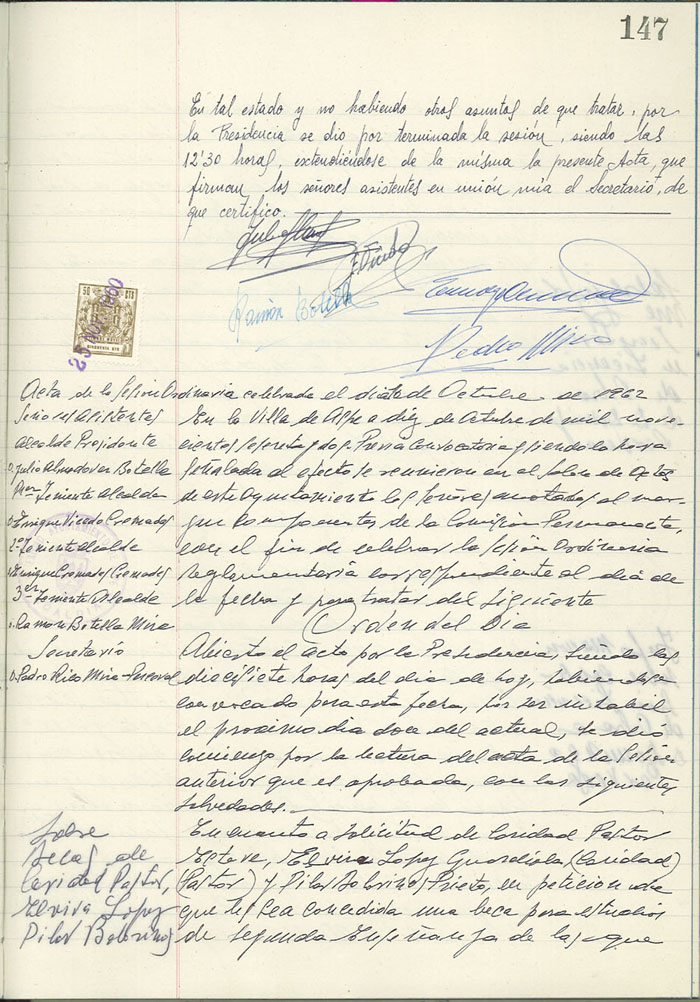 147
En tal estado y no habiendo otros asuntos de que tratar, por
la Presidencia se dio por terminada la sesión, siendo las
12'30 horas, extendiéndose de la misma la presente Acta, que
firman los señores asistentes en unión mia el Secretario, de
que certifico.
Ramón Botella
Pedro Mira
50 CTS
Acta de la Sesión Ordinaria celebrada el día de Octubre de 1962
Señores Asistentes
Alcalde Presidente
D. Julio Almodovar Botella
Teniente Alcalde
D. Enrique Vicedo Cremades
2º Teniente Alcalde
Enrique Cremades Cremades
3er Teniente Alcalde
D. Ramón Botella Mira
Secretario
D. Pedro Rico Mira-Perceval
En la Villa de Aspe a diez de Octubre de mil nove-
cientos sesenta y dos. Previa Convocatoria y siendo la hora
señalada al efecto se reunieron en el salon de Actos
de este Ayuntamiento los señores anotados al mar-
gen componentes de la Comisión Permanente,
con el fin de celebrar la Sesión Ordinaria
reglamentaria correspondiente al dia de
la fecha y para tratar del siguiente
Orden del Dia
Abierto el acto por la Presidencia, siendo las
diecisiete horas del dia de hoy, habiendose
convocado para esta fecha, por ser inhabil
el proximo dia doce del actual, se dio
comienzo por la lectura del acta de la Sesión
anterior que es aprobada, con las siguientes
salvedades.
Sobre
Becas de
Caridad Pastor,
Elvira Lopez
Pilar Bolorinos
En cuanto a solicitud de Caridad Pastor
Esteve, Elvira Lopez Guardiola (Caridad)
(Pastor) y Pilar Bolorinos Prieto, en peticion de
que les sea concedida una beca para estudios
de segunda Enseñanza de las que